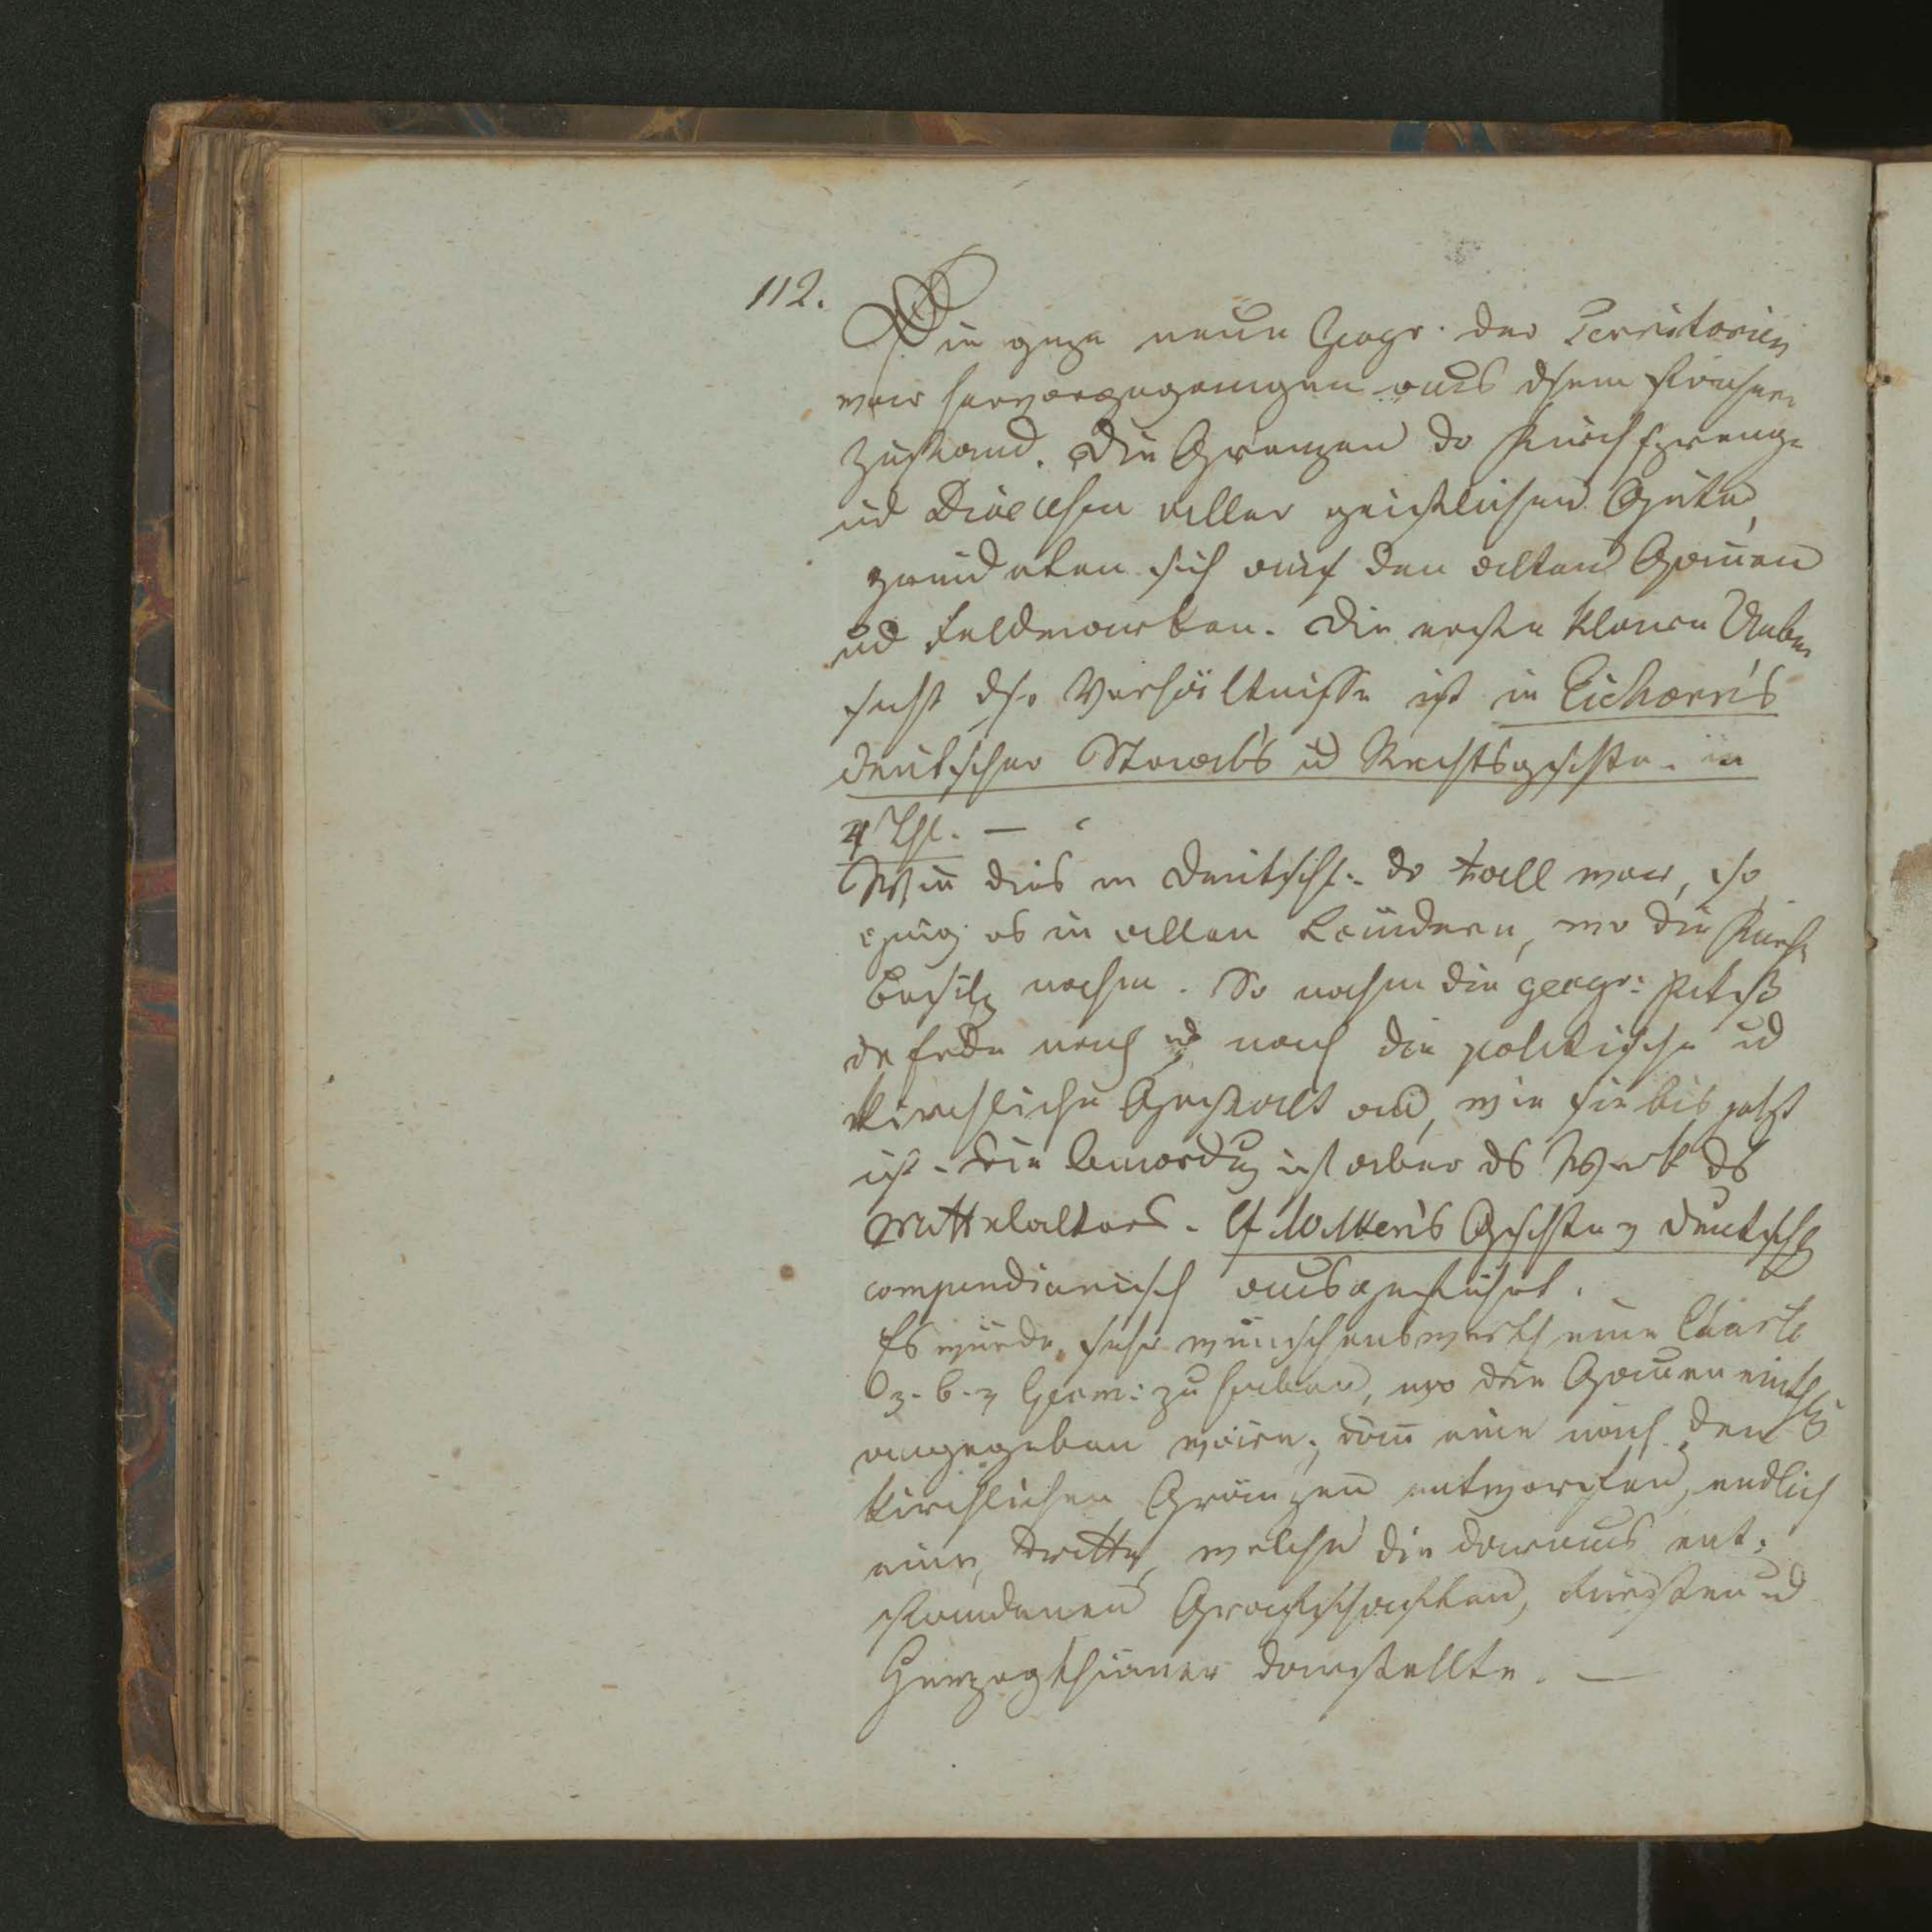 112.
Die ganze neue Geogr. der Territorien
war hervorgegangen aus dsem früheren
Zustand. Die Grenzen der Kirchsprengel
ud Dioecesen aller geistlichen Güter,
gründeten sich auf den alten Gauen
ud Feldmarken. Die erste klare Ueber
sicht dsr Verhältnisse ist in Eichorn's
deutscher Staats ud Rechtsgeschichte in
4 Thl. —
Wie dies in Deutschl. der Fall war, so
ging es in allen Ländern, wo die Kirche
Besitz nahm. So nahm die geogr:
der Erde nach ud nach die politische ud
kirchliche Gestalt an, wie sie bis jetzt
ist. Die ist aber ds Werk ds
Mittelalters. Cf Geschichte v Deutschl
compendiarisch ausgeführt.
Es würde sehr wünschenswerth eine Charte
z. b. v Germ: zu haben, wo die Gauen
angegeben wären; dann eine nach den
kirchlichen Gränzen entworfen, endlich
eine, dritte, welche die daraus ent-
standenen Grafschaften, Fürsten ud
Herzogthümer darstellte. —